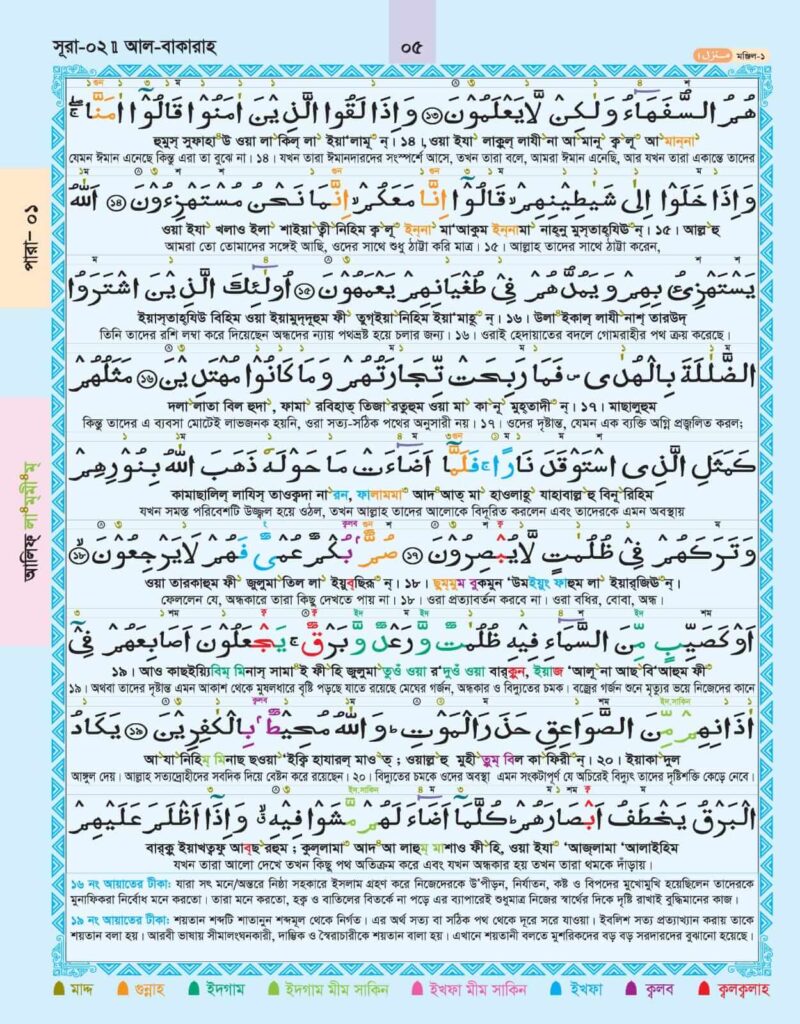 সূরা-০২॥ আল-বাকারাহ
০৫
منزل ١ মঞ্জিল-১
هُمُ السُّفَهَآءُ وَلٰكِنْ لَّا يَعْلَمُوْنَ ⑬ وَاِذَا لَقُوا الَّذِيْنَ اٰمَنُوْا قَالُوْٓا اٰمَنَّا ۚۖ
হুমুস্ সুফাহা উ ওয়া লা কিল্ লা ইয়া‘লামূ ন্। ১৪।, ওয়া ইযা লাকুল্ লাযী না আ মানূ ক্ব লূ আ মান্না
যেমন ঈমান এনেছে কিন্তু এরা তা বুঝে না। ১৪। যখন তারা ঈমানদারদের সংস্পর্শে আসে, তখন তারা বলে, আমরা ঈমান এনেছি, আর যখন তারা একান্তে তাদের
وَاِذَا خَلَوْا اِلٰى شَيٰطِيْنِهِمْ ۙ قَالُوْٓا اِنَّا مَعَكُمْ ۙ اِنَّمَا نَحْنُ مُسْتَهْزِءُوْنَ ⑭ اَللّٰهُ
ওয়া ইযা খলাও ইলা শাইয়া ত্বী নিহিম ক্ব লূ ইন্না মা‘আকুম ইন্নামা নাহ্নু মুস্তাহ্যিউ ন্। ১৫। আল্ল হু
আমরা তো তোমাদের সঙ্গেই আছি, ওদের সাথে শুধু ঠাট্টা করি মাত্র। ১৫। আল্লাহ তাদের সাথে ঠাট্টা করেন,
يَسْتَهْزِئُ بِهِمْ وَيَمُدُّهُمْ فِيْ طُغْيَانِهِمْ يَعْمَهُوْنَ ⑮ اُولٰٓئِكَ الَّذِيْنَ اشْتَرَوُا
ইয়াস্তাহ্যিউ বিহিম ওয়া ইয়ামুদ্দূহুম ফী তুগ্ইয়া নিহিম ইয়া‘মাহূ ন্। ১৬। উলা ইকাল্ লাযী নাশ্ তারউদ্
তিনি তাদের রশি লম্বা করে দিয়েছেন অন্ধদের ন্যায় পথভ্রষ্ট হয়ে চলার জন্য। ১৬। ওরাই হেদায়াতের বদলে গোমরাহীর পথ ক্রয় করেছে।
الضَّلٰلَةَ بِالْهُدٰى ۪ فَمَا رَبِحَتْ تِّجَارَتُهُمْ وَمَا كَانُوْا مُهْتَدِيْنَ ⑯ مَثَلُهُمْ
দলা লাতা বিল হুদা, ফামা রবিহাত্ তিজা রতুহুম ওয়া মা কা নূ মুহ্তাদী ন্। ১৭। মাছালুহুম
কিন্তু তাদের এ ব্যবসা মোটেই লাভজনক হয়নি, ওরা সত্য-সঠিক পথের অনুসারী নয়। ১৭। ওদের দৃষ্টান্ত, যেমন এক ব্যক্তি অগ্নি প্রজ্বলিত করল;
كَمَثَلِ الَّذِى اسْتَوْقَدَ نَارًا ۚ فَلَمَّآ اَضَآءَتْ مَا حَوْلَهٗ ذَهَبَ اللّٰهُ بِنُوْرِهِمْ
কামাছালিল্ লাযিস্ তাওক্বদা না রন, ফালামমা আদ আত্ মা হাওলাহূ যাহাবাল্ল হু বিনূ রিহিম
যখন সমস্ত পরিবেশটি উজ্জ্বল হয়ে ওঠল, তখন আল্লাহ তাদের আলোকে বিদূরিত করলেন এবং তাদেরকে এমন অবস্থায়
وَتَرَكَهُمْ فِيْ ظُلُمٰتٍ لَّا يُبْصِرُوْنَ ⑰ صُمٌّۢ بُكْمٌ عُمْيٌ فَهُمْ لَا يَرْجِعُوْنَ ⑱ ۙ
ওয়া তারকাহুম ফী জুলুমা তিল লা ইয়ুব্ছিরূ ন্। ১৮। ছুম্মুম বুকমুন ‘উমইয়ুং ফাহুম লা ইয়ার্জিঊ ন্।
ফেললেন যে, অন্ধকারে তারা কিছু দেখতে পায় না। ১৮। ওরা প্রত্যাবর্তন করবে না। ওরা বধির, বোবা, অন্ধ।
اَوْ كَصَيِّبٍ مِّنَ السَّمَآءِ فِيْهِ ظُلُمٰتٌ وَّرَعْدٌ وَّبَرْقٌ ۚ يَجْعَلُوْنَ اَصَابِعَهُمْ فِيْٓ
১৯। আও কাছইয়্যিবিম্ মিনাস্ সামা ই ফী হি জুলুমা তুওঁ ওয়া র‘দুওঁ ওয়া বার্কুন, ইয়াজ ‘আলূ না আছ বি‘আহুম ফী
১৯। অথবা তাদের দৃষ্টান্ত এমন আকাশ থেকে মুষলধারে বৃষ্টি পড়ছে যাতে রয়েছে মেঘের গর্জন, অন্ধকার ও বিদ্যুতের চমক। বজ্রের গর্জন শুনে মৃত্যুর ভয়ে নিজেদের কানে
اٰذَانِهِمْ مِّنَ الصَّوَاعِقِ حَذَرَ الْمَوْتِ ؕ وَاللّٰهُ مُحِيْطٌۢ بِالْكٰفِرِيْنَ ⑲ يَكَادُ
আ যা নিহিম্ মিনাছ ছওয়া ‘ইক্বি হাযারল্ মাও ত্ ; ওয়াল্ল হু মুহী তুম্ বিল কা ফিরী ন্। ২০। ইয়াকা দুল
আঙ্গুল দেয়। আল্লাহ সত্যদ্রোহীদের সবদিক দিয়ে বেষ্টন করে রয়েছেন। ২০। বিদ্যুতের চমকে ওদের অবস্থা এমন সংকটাপূর্ণ যে অচিরেই বিদ্যুৎ তাদের দৃষ্টিশক্তি কেড়ে নেবে।
الْبَرْقُ يَخْطَفُ اَبْصَارَهُمْ ؕ كُلَّمَآ اَضَآءَ لَهُمْ مَّشَوْا فِيْهِ ۙ وَاِذَآ اَظْلَمَ عَلَيْهِمْ
বার্কু ইয়াখত্বফু আব্ছ রহুম ; কুল্লামা আদ আ লাহুম্ মাশাও ফী হি, ওয়া ইযা ‘আজ্লামা ‘আলাইহিম
যখন তারা আলো দেখে তখন কিছু পথ অতিক্রম করে এবং যখন অন্ধকার হয় তখন তারা থমকে দাঁড়ায়।
১৬ নং আয়াতের টীকা: যারা সৎ মনে/অন্তরে নিষ্ঠা সহকারে ইসলাম গ্রহণ করে নিজেদেরকে উ'পীড়ন, নির্যাতন, কষ্ট ও বিপদের মুখোমুখি হয়েছিলেন তাদেরকে
মুনাফিকরা নির্বোধ মনে করতো। তারা মনে করতো, হক্ব ও বাতিলের বিতর্কে না পড়ে এর ব্যাপারেই শুধুমাত্র নিজের স্বার্থের দিকে দৃষ্টি রাখাই বুদ্ধিমানের কাজ।
১৯ নং আয়াতের টীকা: শয়তান শব্দটি শাতানুন শব্দমূল থেকে নির্গত। এর অর্থ সত্য বা সঠিক পথ থেকে দূরে সরে যাওয়া। ইবলিশ সত্য প্রত্যাখ্যান করায় তাকে
শয়তান বলা হয়। আরবী ভাষায় সীমালংঘনকারী, দাম্ভিক ও স্বৈরাচারীকে শয়তান বালা হয়। এখানে শয়তানী বলতে মুশরিকদের বড় বড় সরদারদের বুঝানো হয়েছে।
মাদ্দ গুন্নাহ ইদগাম ইদগাম মীম সাকিন ইখফা মীম সাকিন ইখফা ক্বলব ক্বলক্বলাহ
পারা- ০১
আলিফ্ লা ম্মী ম্